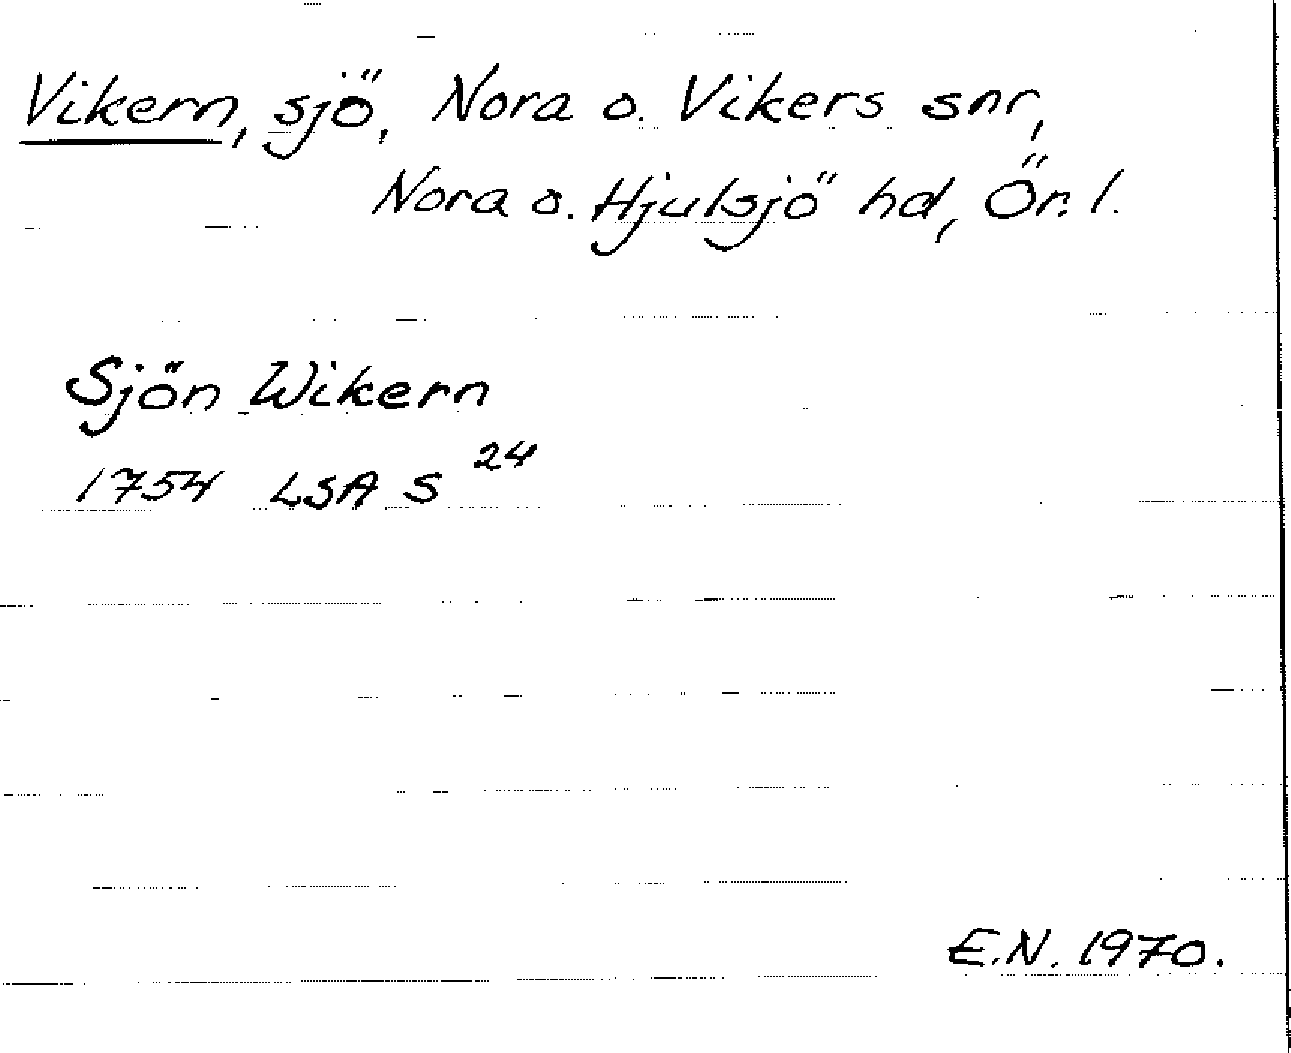 Vikern, sjö, Nora o. Vikers snr,
Nora o. Hjulsjö hd, Ör. l.
Sjön Wikern
1754 LSA S 24
E.N. 1970.